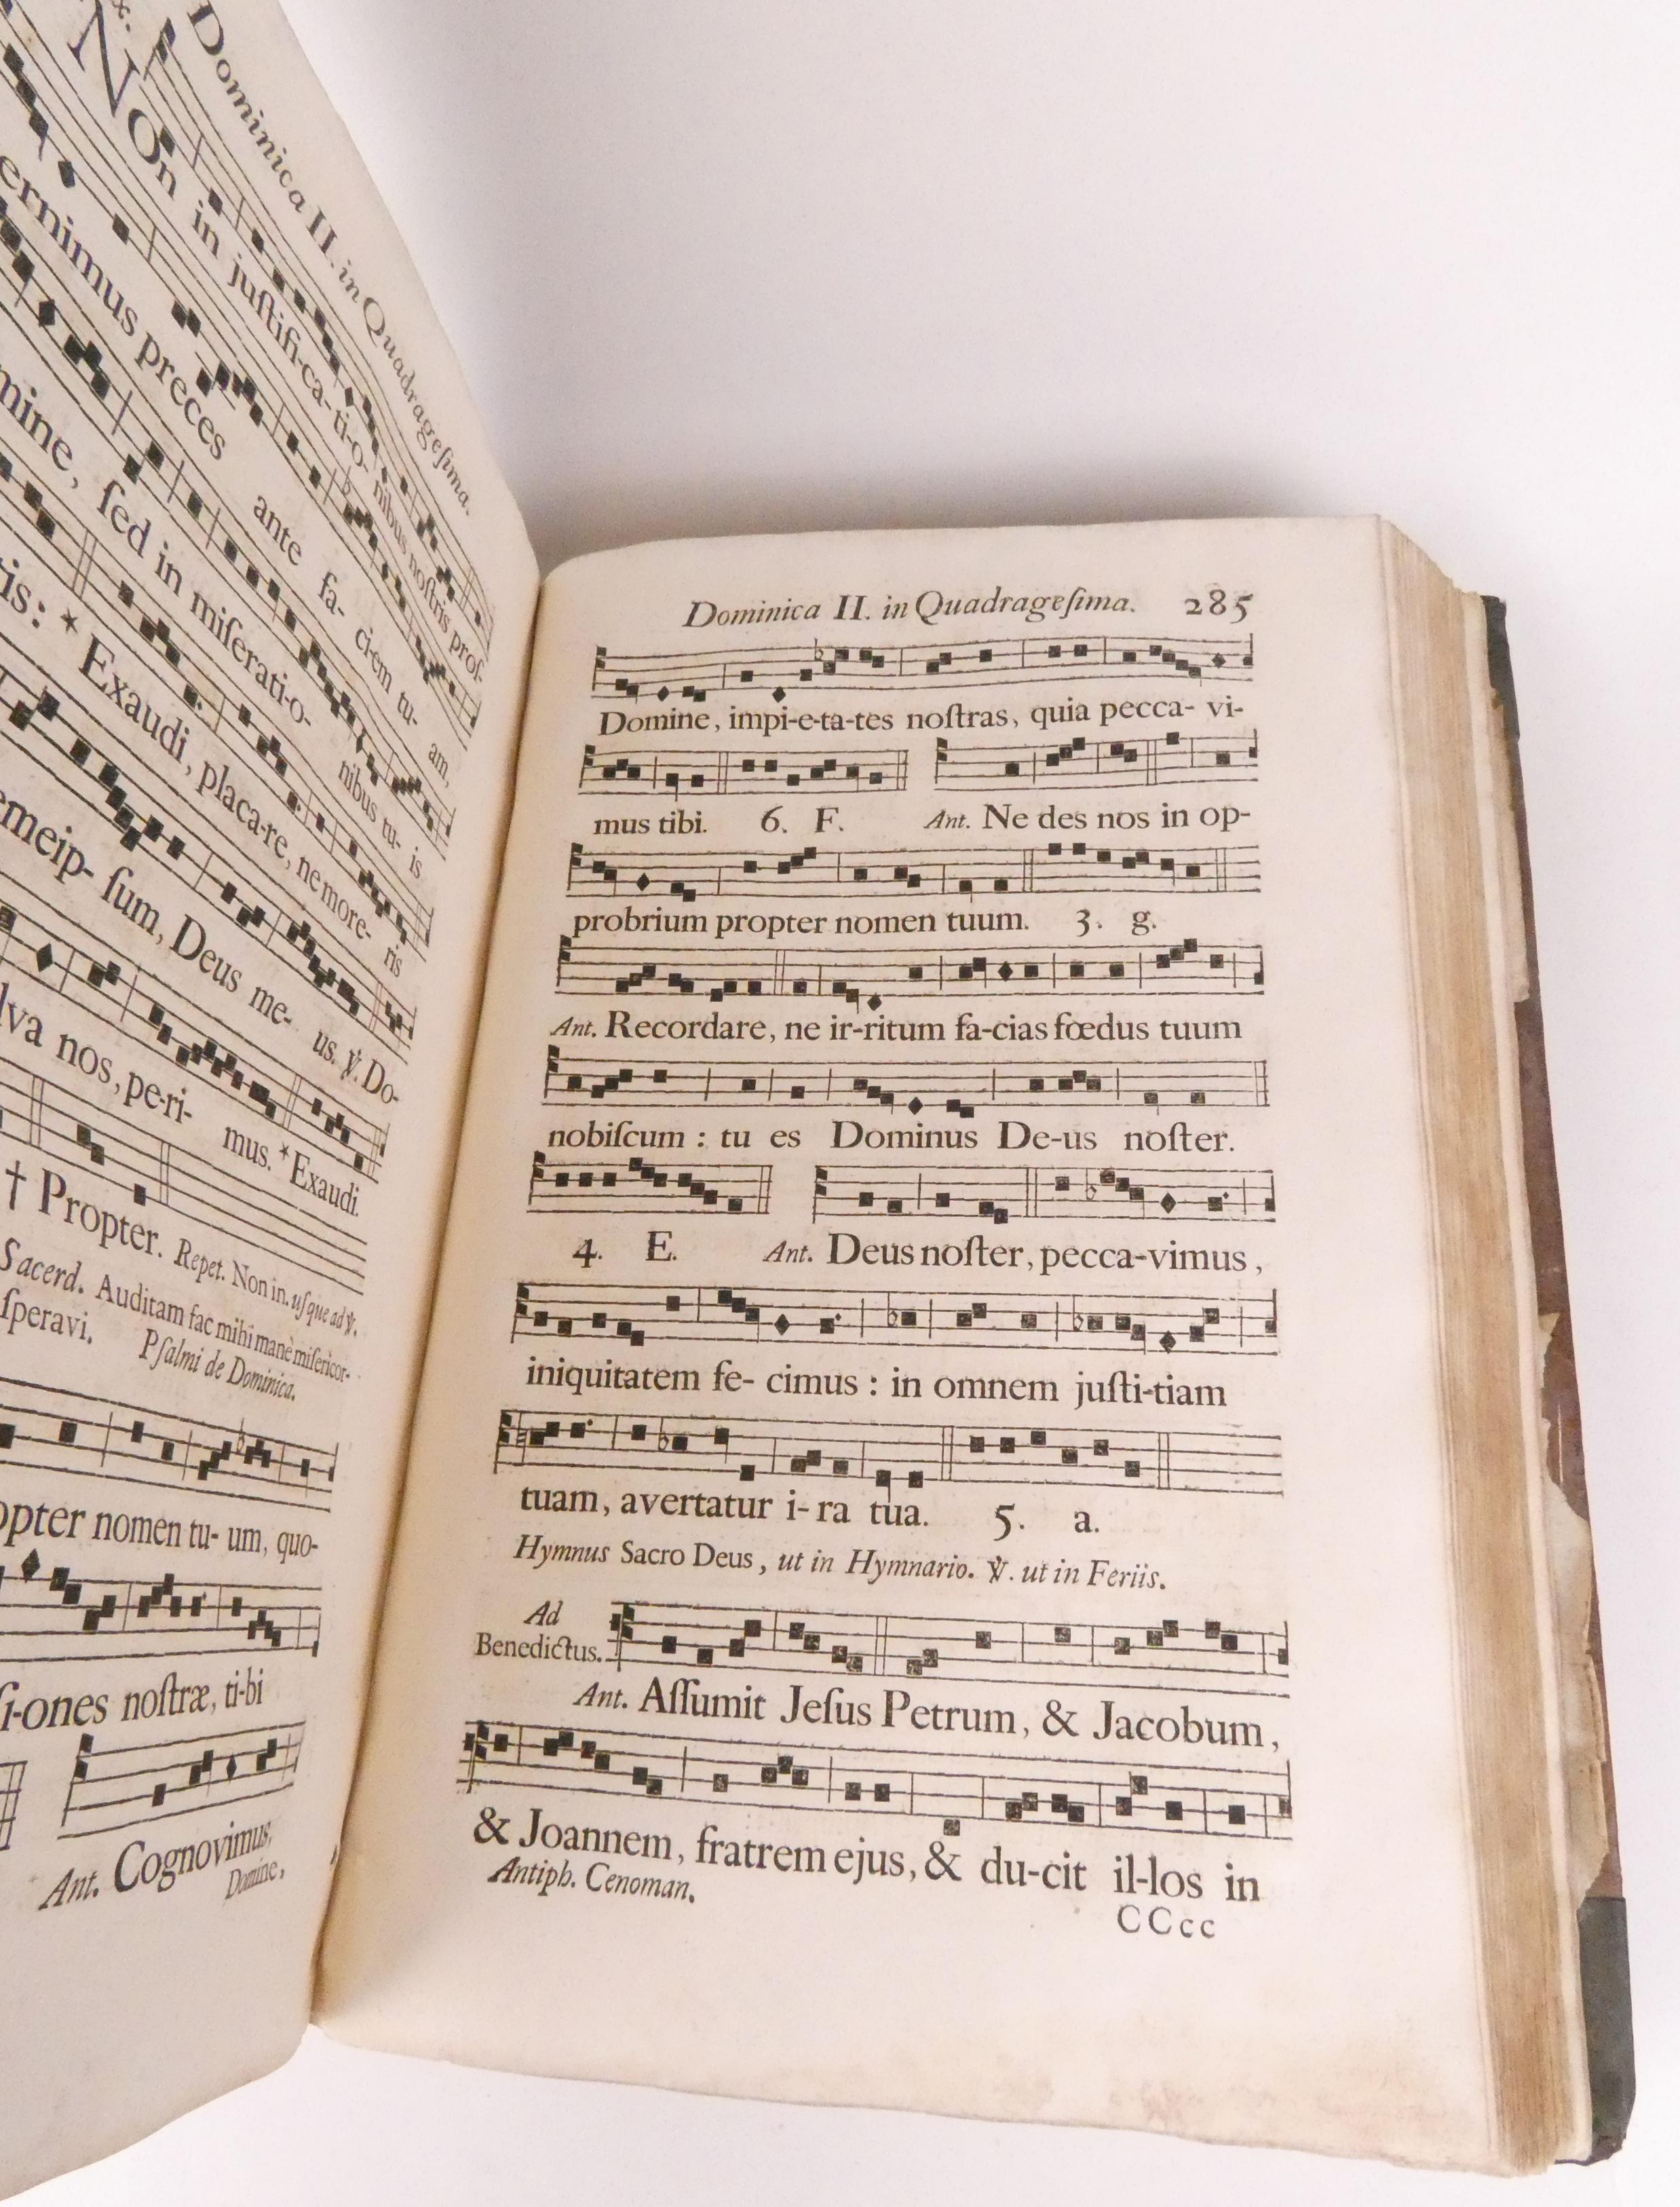 Dominica II. in Quadrageſima.
Non in juſtifi-ca-ti-o- nibus noſtris proſ-
ernimus preces ante fa- ci-em tu- am,
mine, ſed in miſerati-o- nibus tu- is
is: * Exaudi, placa-re, ne more- ris
emeip- ſum, Deus me- us. ℣. Do-
lva nos, pe-ri- mus. * Exaudi.
† Propter. Repet. Non in. uſque ad ℣.
Sacerd. Auditam fac mihi manè miſericor-
ſperavi.
Pſalmi de Dominica.
opter nomen tu- um, quo-
ſi-ones noſtræ, ti-bi
Ant. Cognovimus,
Domine,
Dominica II. in Quadrageſima. 285
Domine, impi-e-ta-tes noſtras, quia pecca- vi-
mus tibi. 6. F. Ant. Ne des nos in op-
probrium propter nomen tuum. 3. g.
Ant. Recordare, ne ir-ritum fa-cias fœdus tuum
nobiſcum : tu es Dominus De-us noſter.
4. E. Ant. Deus noſter, pecca-vimus,
iniquitatem fe- cimus : in omnem juſti-tiam
tuam, avertatur i- ra tua. 5. a.
Hymnus Sacro Deus, ut in Hymnario. ℣. ut in Feriis.
Ad
Benedictus.
Ant. Aſſumit Jeſus Petrum, & Jacobum,
& Joannem, fratrem ejus, & du-cit il-los in
Antiph. Cenoman.
CCcc